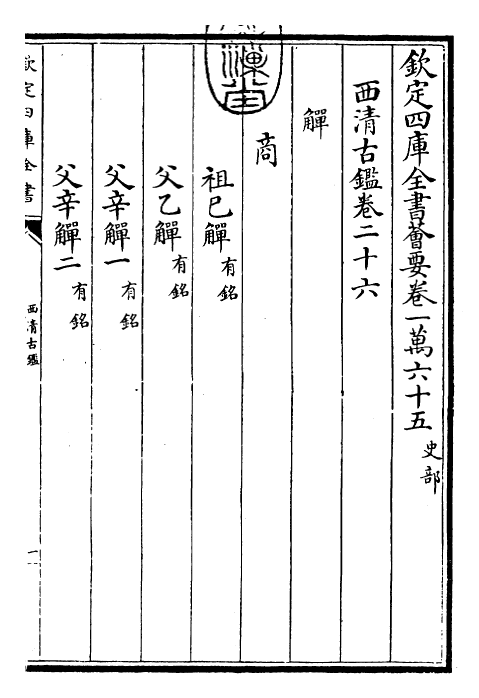 欽定四庫全書薈要卷一萬六十五 史部
西清古鑑卷二十六
觶
商
祖已觶 有銘
父乙觶 有銘
父辛觶一 有銘
父辛觶二 有銘
欽定四庫全書
西清古鑑
一